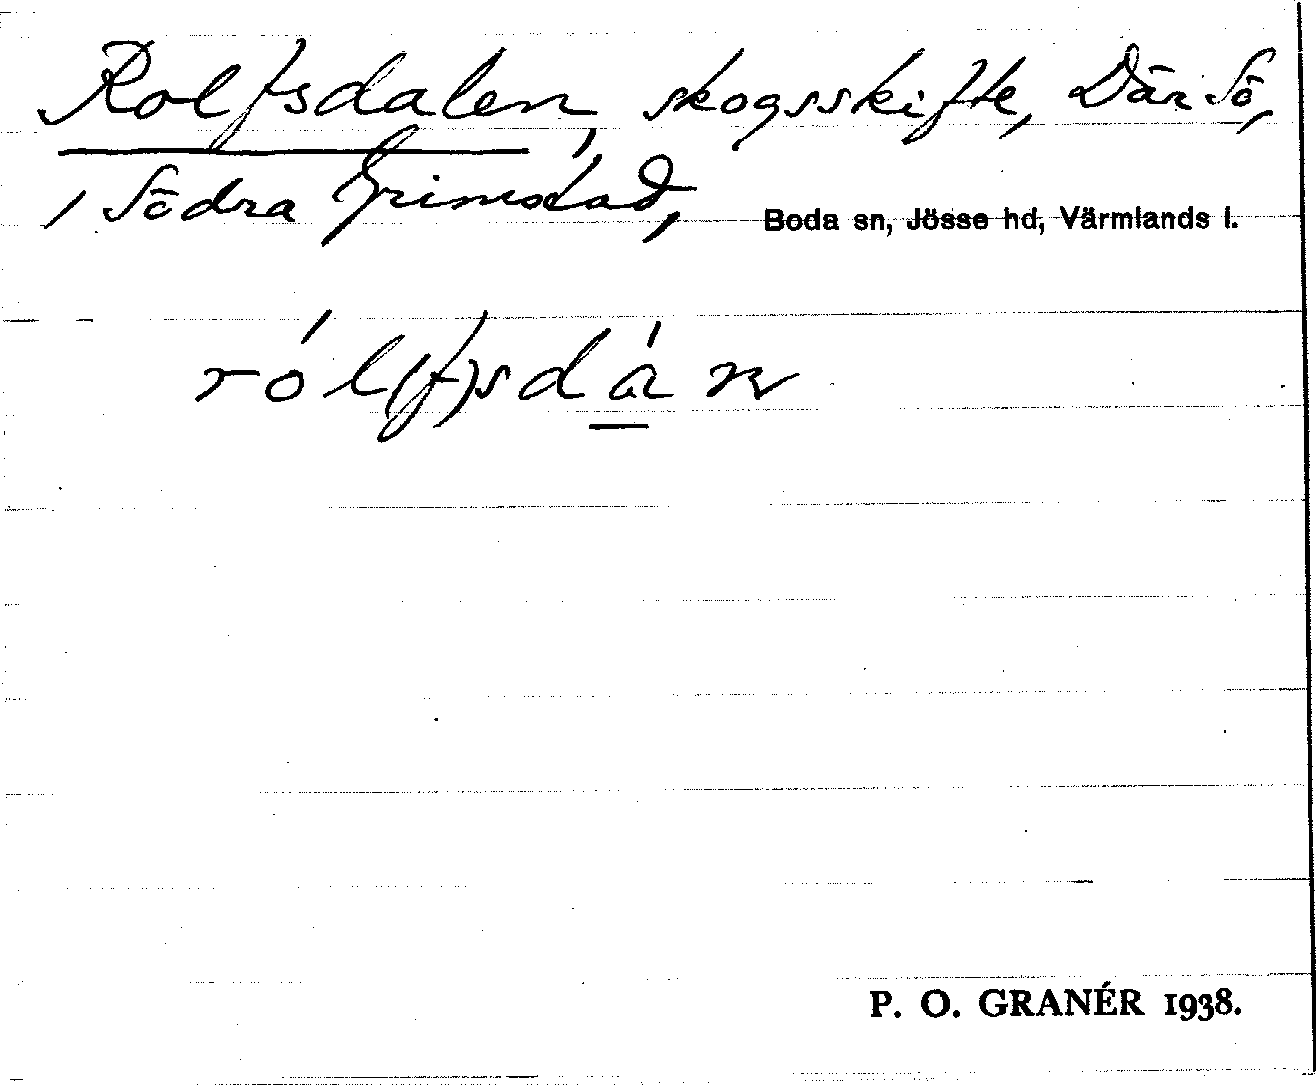 Rolfsdalen, skogsskifte, Där Sö,
i Södra Grimstad, Boda sn, Jösse hd, Värmlands l.
ról(f)sdán
P. O. GRANÉR 1938.